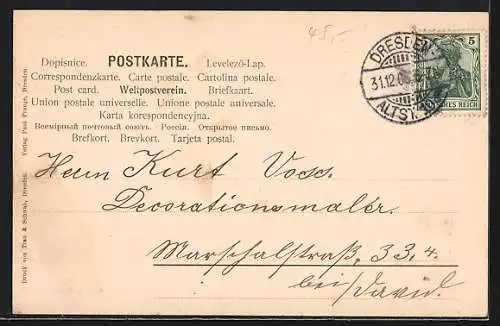 45,-
Dopisnice. POSTKARTE. Levelező-Lap.
Correspondenzkarte. Carte postale. Cartolina postale.
Post card. Weltpostverein. Briefkaart.
Union postale universelle. Unione postale universale.
Karta korespondencyjna.
Всемірный почтовый союзъ. Россія. Открытое письмо.
Brefkort. Brevkort. Tarjeta postal.
DRESDEN
31.12.0
ALTST.
5
Herrn Kurt Voss.
Decorationsmaler.
Marschalstraß, 33,4.
bei David.
Druck von Trau & Schwab, Dresden. Verlag Paul Prange, Dresden.